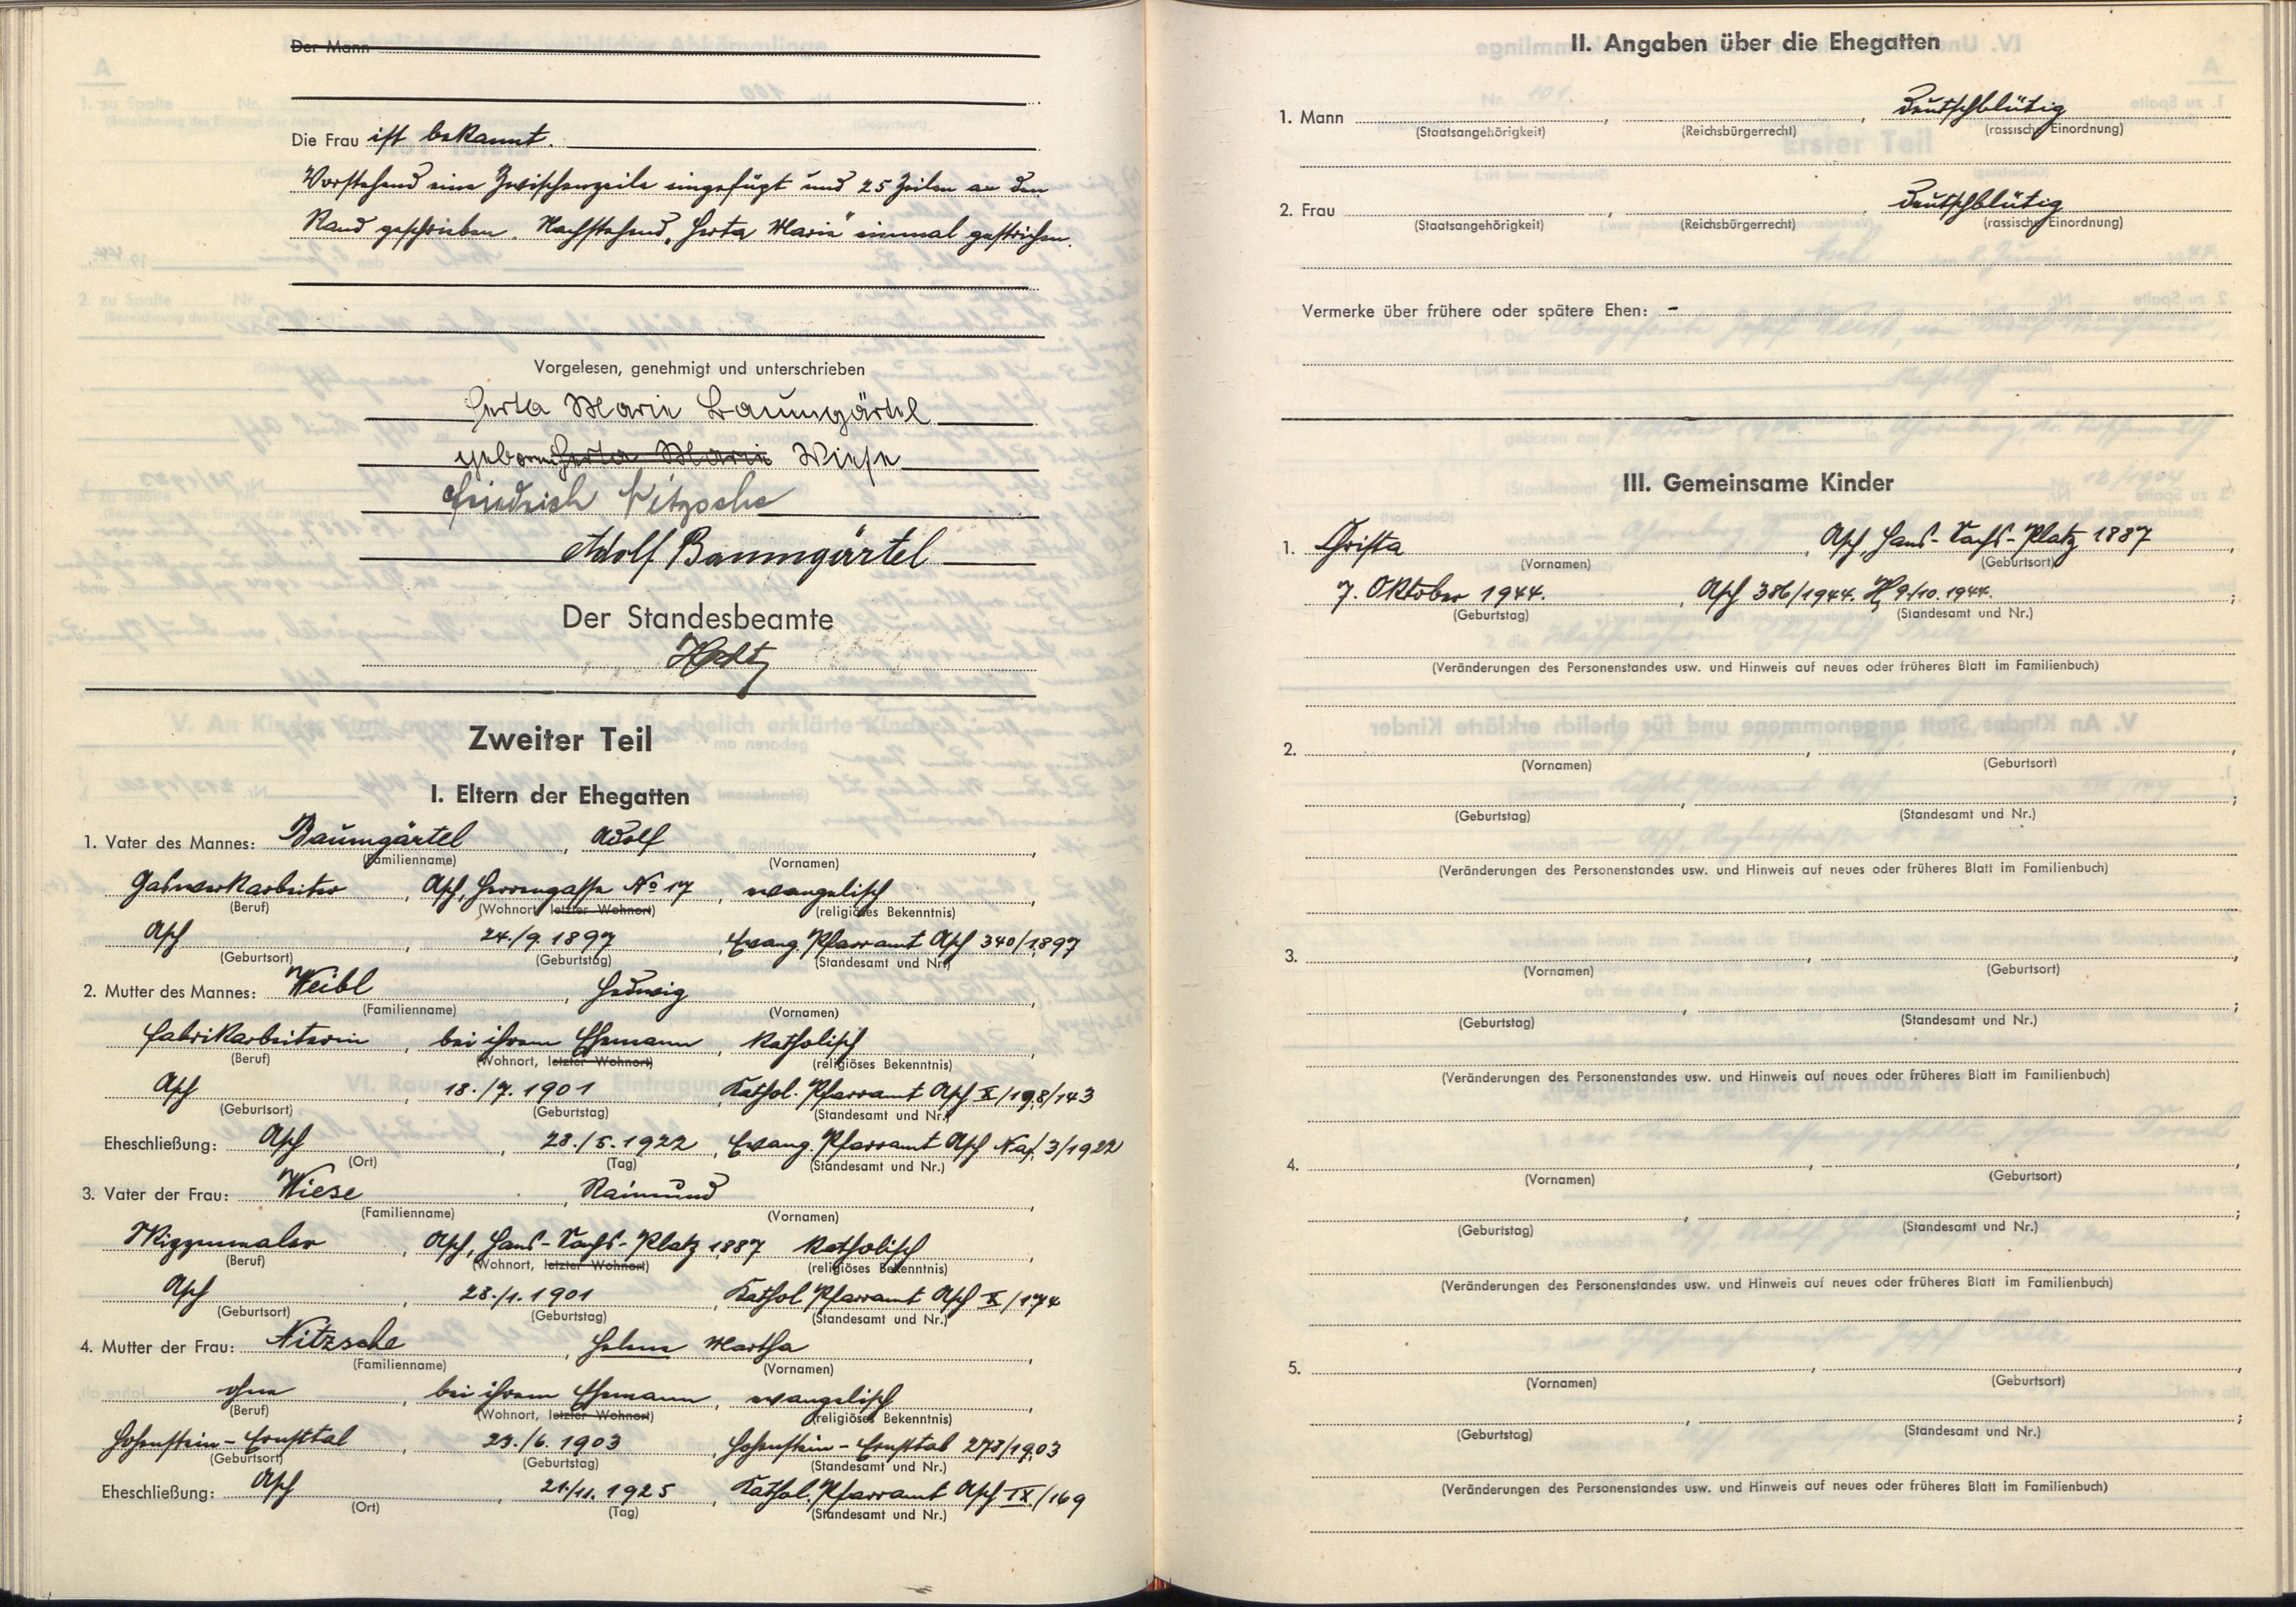 Der Mann
Die Frau ist bekannt.
Vorstehend eine Zwischenzeile eingefügt und 25 Zeilen an den
Rand geschrieben. Nachstehend „Herta Marie" einmal gestrichen.
Vorgelesen, genehmigt und unterschrieben
Herta Marie Baumgärtel
geborene Herta Marie Wiese
Friedrich Nitzsche
Adolf Baumgärtel
Der Standesbeamte
Zweiter Teil
I. Eltern der Ehegatten
1. Vater des Mannes: Baumgärtel, Adolf
(Familienname) (Vornamen)
Gaswerkarbeiter, Asch, Herrengasse No 17, evangelisch,
(Beruf) (Wohnort, letzter Wohnort) (religiöses Bekenntnis)
Asch, 24./9. 1897, Evang. Pfarramt Asch 340/1897
(Geburtsort) (Geburtstag) (Standesamt und Nr.)
2. Mutter des Mannes: Weibl, Hedwig,
(Familienname) (Vornamen)
Fabrikarbeiterin, bei ihrem Ehemann, katholisch,
(Beruf) (Wohnort, letzter Wohnort) (religiöses Bekenntnis)
Asch, 18./7. 1901, Kathol. Pfarramt Asch X/198/143
(Geburtsort) (Geburtstag) (Standesamt und Nr.)
Eheschließung: Asch, 28./5. 1922, Evang. Pfarramt Asch 3/1922
(Ort) (Tag) (Standesamt und Nr.)
3. Vater der Frau: Wiese, Raimund,
(Familienname) (Vornamen)
Asch, Hans-Sachs-Platz 1887 katholisch,
(Beruf) (Wohnort, letzter Wohnort) (religiöses Bekenntnis)
Asch, 28./1. 1901, Kathol Pfarramt Asch X/174
(Geburtsort) (Geburtstag) (Standesamt und Nr.)
4. Mutter der Frau: Nitzsche, Helene Martha,
(Familienname) (Vornamen)
ohne, bei ihrem Ehemann, evangelisch,
(Beruf) (Wohnort, letzter Wohnort) (religiöses Bekenntnis)
Hohenstein-Ernsttal, 23./6. 1903, Hohenstein-Ernsttal 278/1903
(Geburtsort) (Geburtstag) (Standesamt und Nr.)
Eheschließung: Asch, 21./11. 1925, Kathol. Pfarramt Asch IX/169
(Ort) (Tag) (Standesamt und Nr.)
II. Angaben über die Ehegatten
1. Mann , , deutschblütig
(Staatsangehörigkeit) (Reichsbürgerrecht) (rassische Einordnung)
2. Frau , , deutschblütig
(Staatsangehörigkeit) (Reichsbürgerrecht) (rassische Einordnung)
Vermerke über frühere oder spätere Ehen: -
III. Gemeinsame Kinder
1. Christa, Asch, Hans-Sachs-Platz 1887,
(Vornamen) (Geburtsort)
7. Oktober 1944., Asch 386/1944. 9./10. 1944.;
(Geburtstag) (Standesamt und Nr.)
(Veränderungen des Personenstandes usw. und Hinweis auf neues oder früheres Blatt im Familienbuch)
2. , ,
(Vornamen) (Geburtsort)
, ;
(Geburtstag) (Standesamt und Nr.)
(Veränderungen des Personenstandes usw. und Hinweis auf neues oder früheres Blatt im Familienbuch)
3. , ,
(Vornamen) (Geburtsort)
, ;
(Geburtstag) (Standesamt und Nr.)
(Veränderungen des Personenstandes usw. und Hinweis auf neues oder früheres Blatt im Familienbuch)
4. , ,
(Vornamen) (Geburtsort)
, ;
(Geburtstag) (Standesamt und Nr.)
(Veränderungen des Personenstandes usw. und Hinweis auf neues oder früheres Blatt im Familienbuch)
5. , ,
(Vornamen) (Geburtsort)
, ;
(Geburtstag) (Standesamt und Nr.)
(Veränderungen des Personenstandes usw. und Hinweis auf neues oder früheres Blatt im Familienbuch)